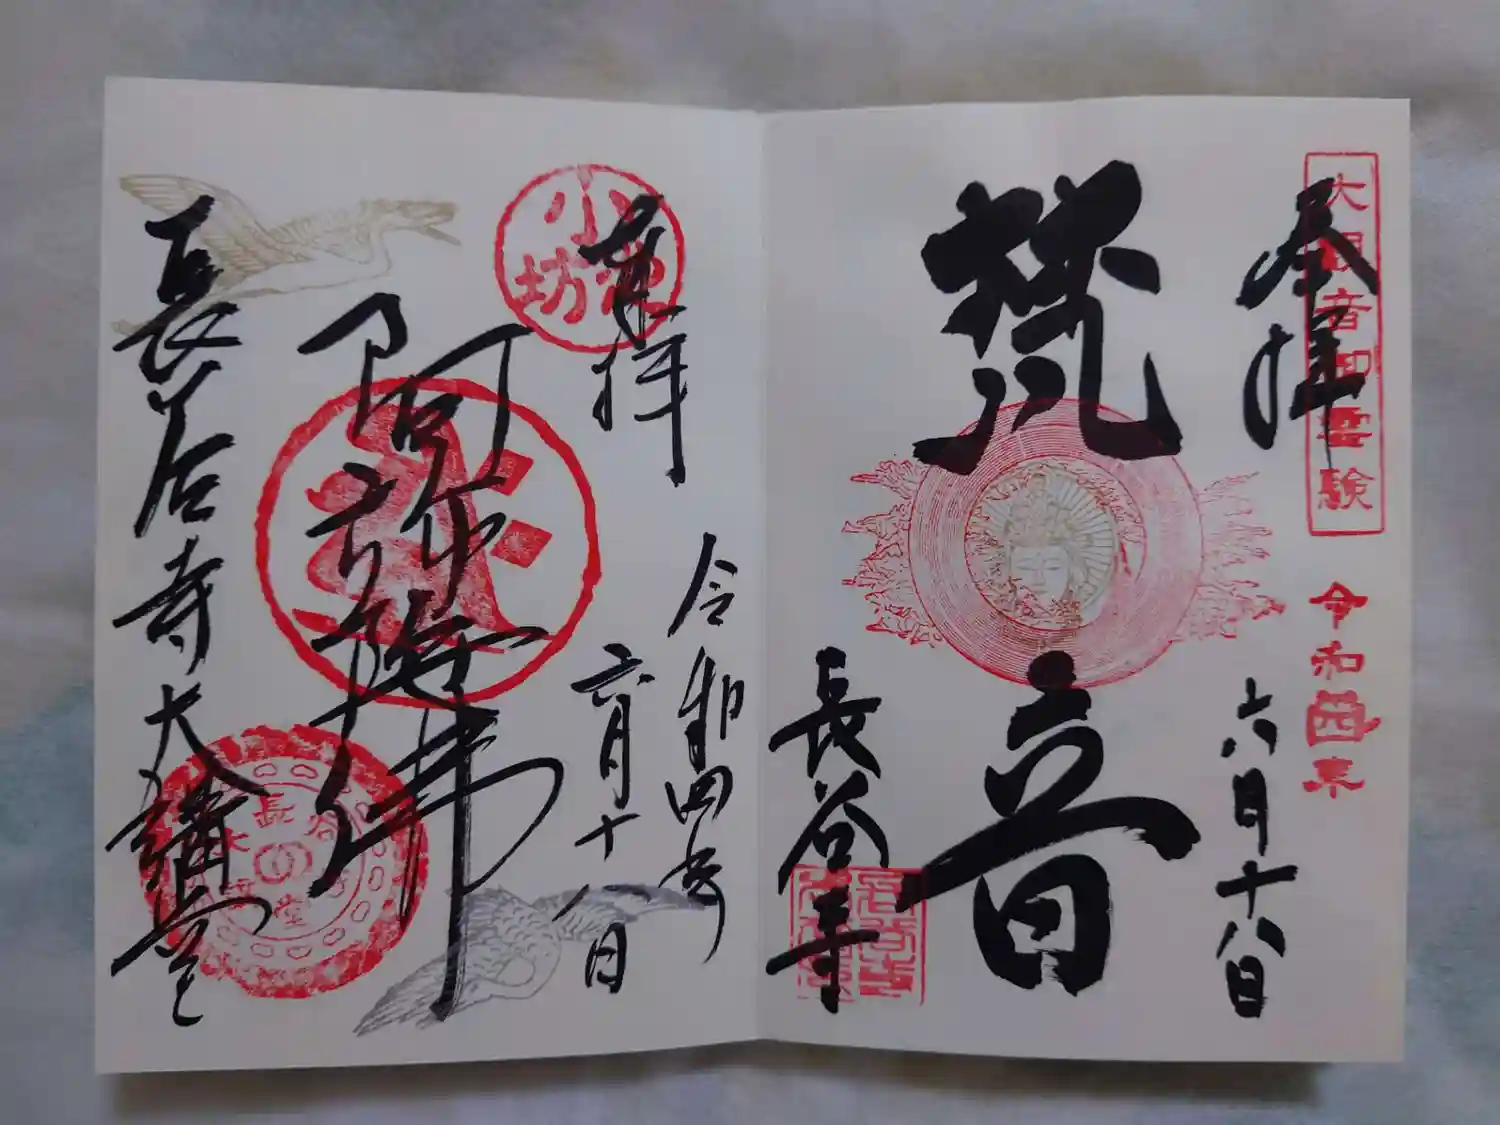 大観音御霊験
奉拝
令和
六月十八日
梵音
長谷寺
小池坊
奉拝
令和四年
六月十八日
阿弥陀佛
長谷寺大講堂